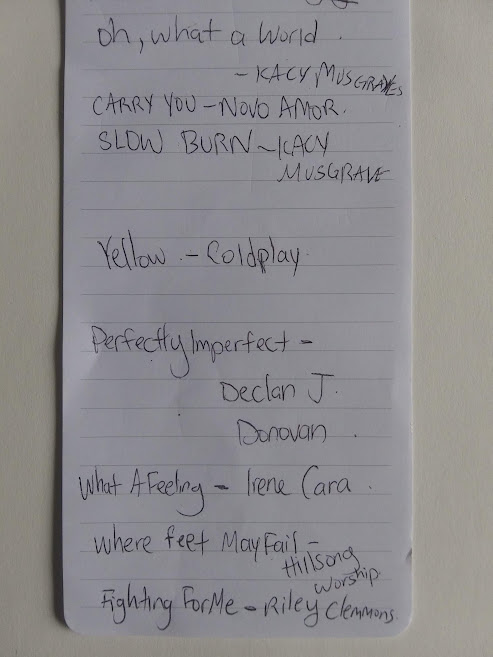 oh, what a World.
- KACY MUSGRAVES
CARRY YOU - NOVO AMOR.
SLOW BURN - KACY
MUSGRAVE
Yellow - Coldplay.
Perfectly Imperfect -
Declan J.
Donovan.
What A Feeling - Irene Cara.
Where feet May Fail -
Hillsong
Worship
Fighting For Me - Riley Clemmons.